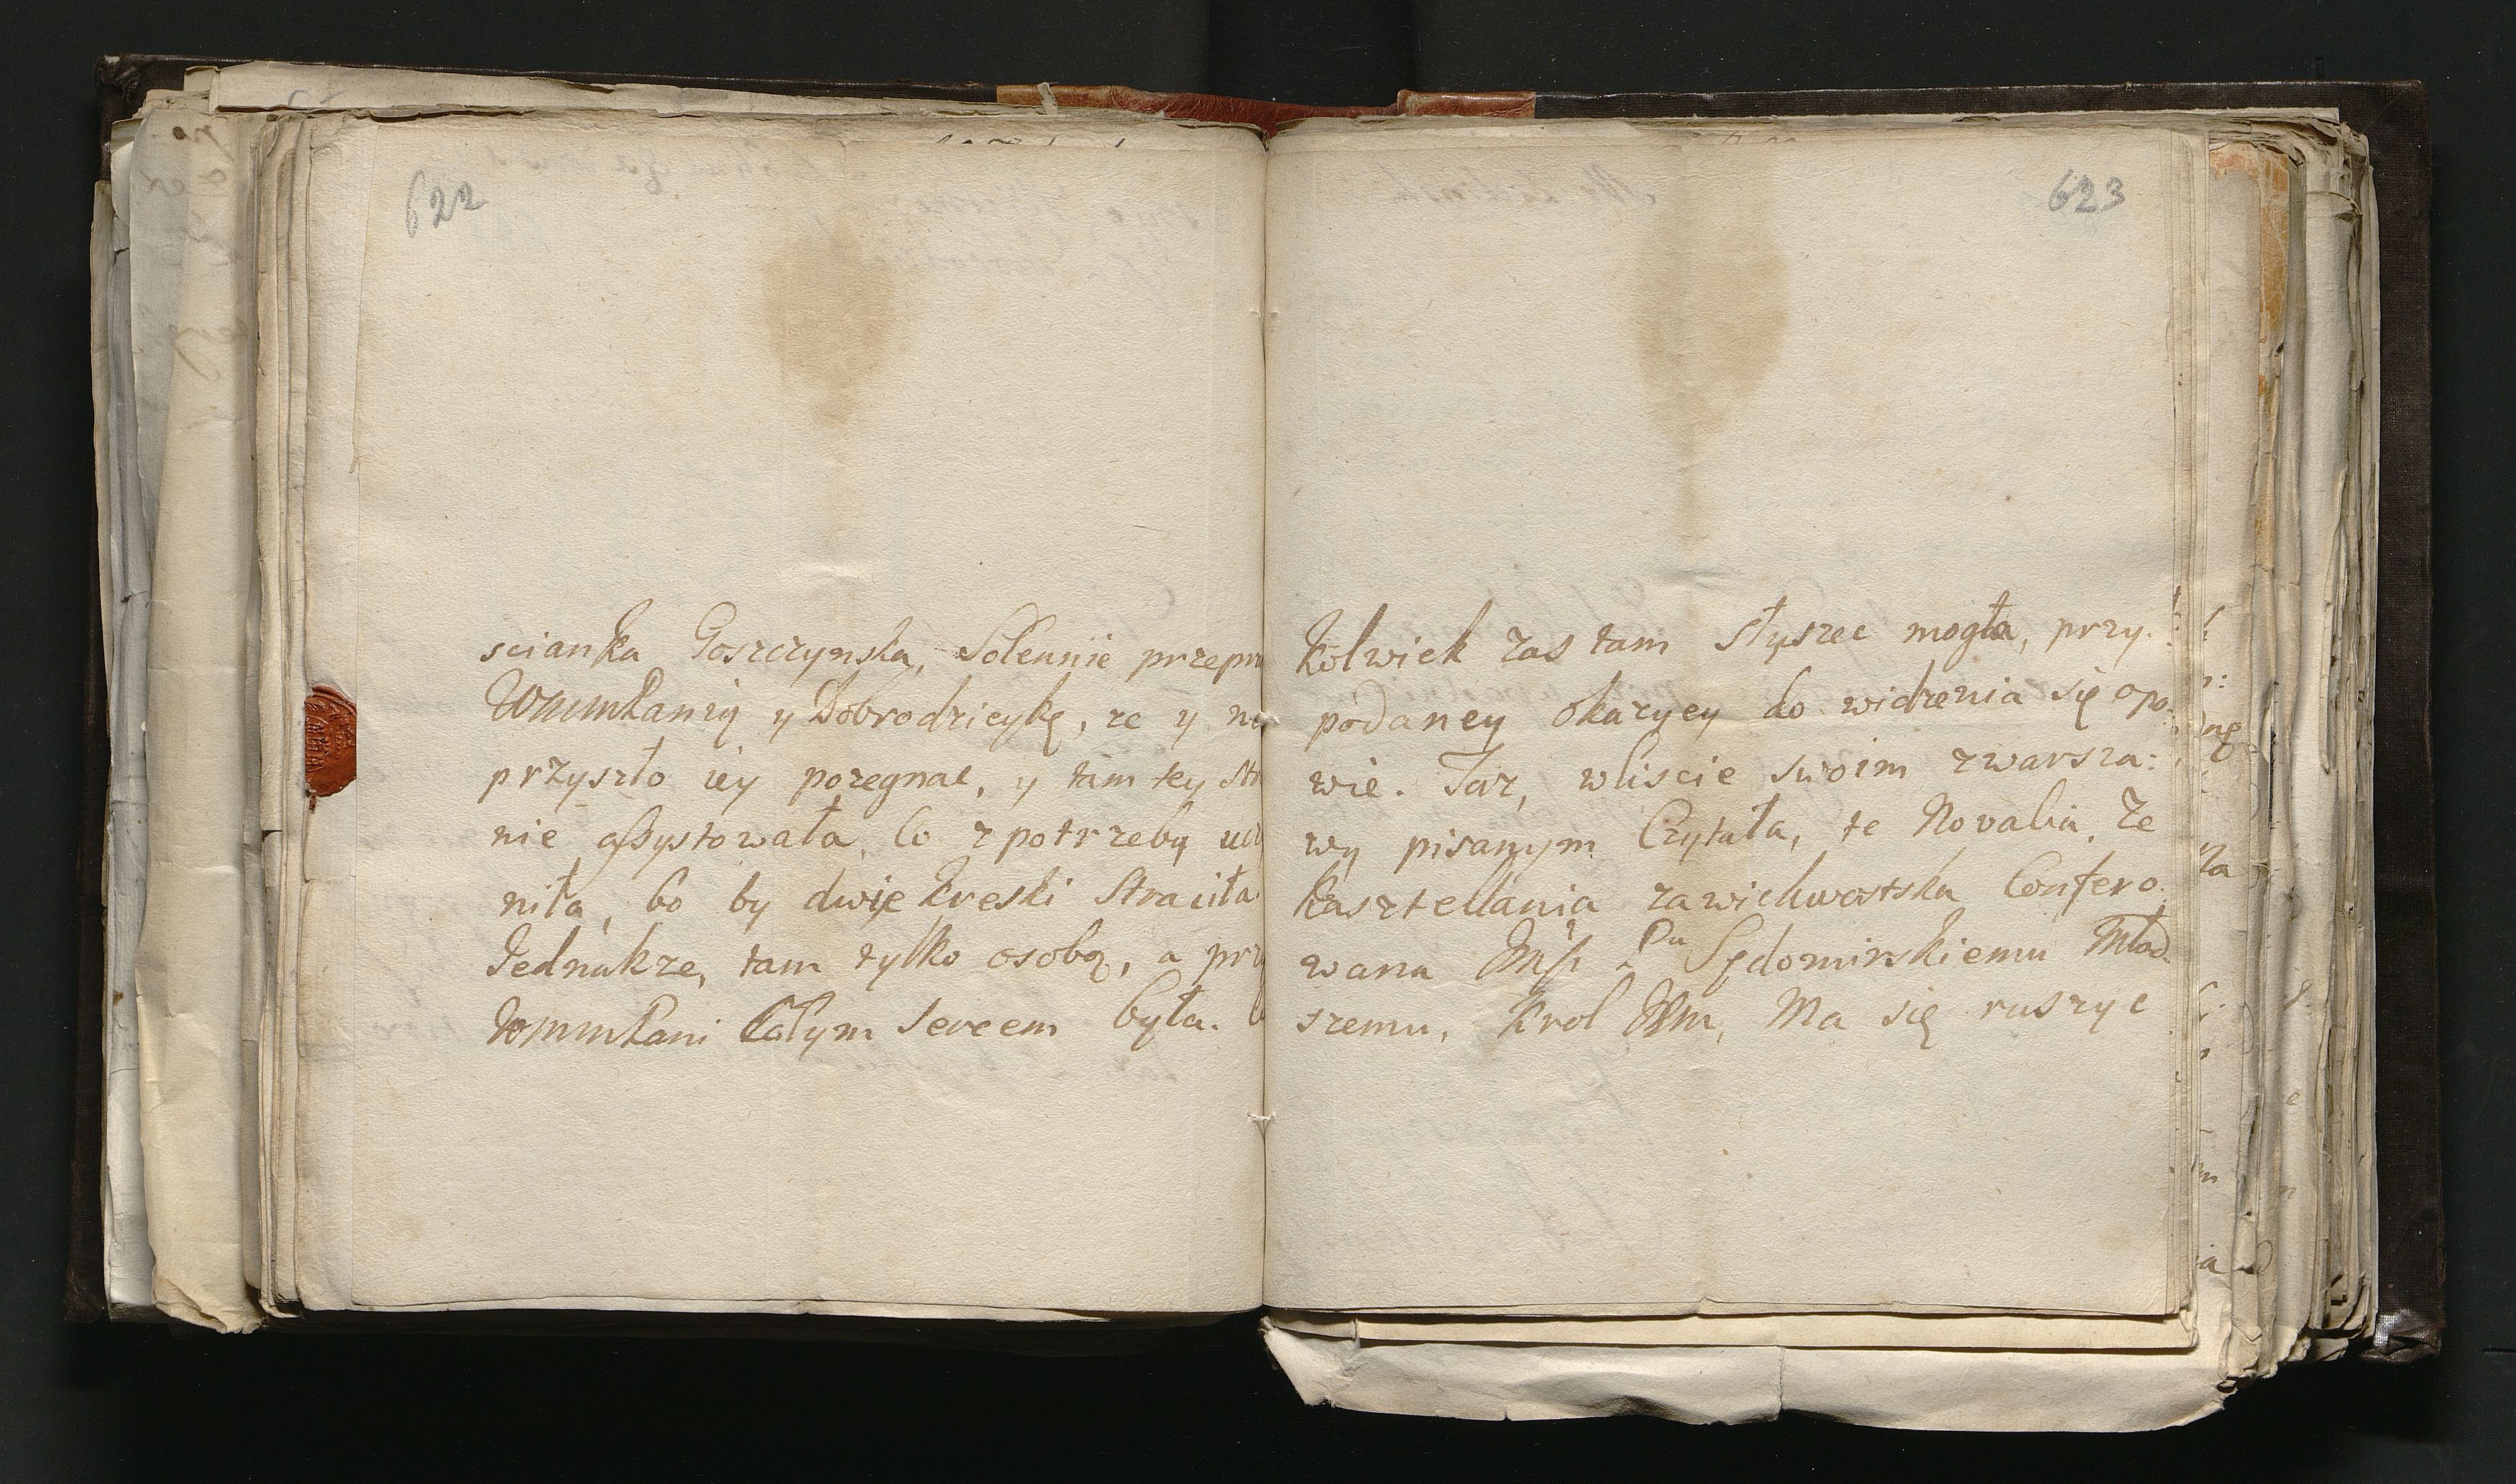 622
scianka Goszczynska, Solennie przepra
WmmPanią y Dobrodzieykę, ze y nie
przyszło iey pozegnac, y tam tey stro
nie assystowała, Co z potrzeby uczy
niła, bo by dwie kreski Straciła
Jednakze, tam tylko osobą, a przy
WmmPani Całym Sercem była.
623
kolwiek zas tam słyszec mogła, przy.
podaney okazyey do widzenia się opo:
wie. Jaz, wliscie swoim zwarsza:
wy pisanym Czytała, te Novalia, Ze
Kasztellania zawichwostska Confero.
wana Pu Sędomirskiemu Młod.
szemu, Krol Ma się ruszyc